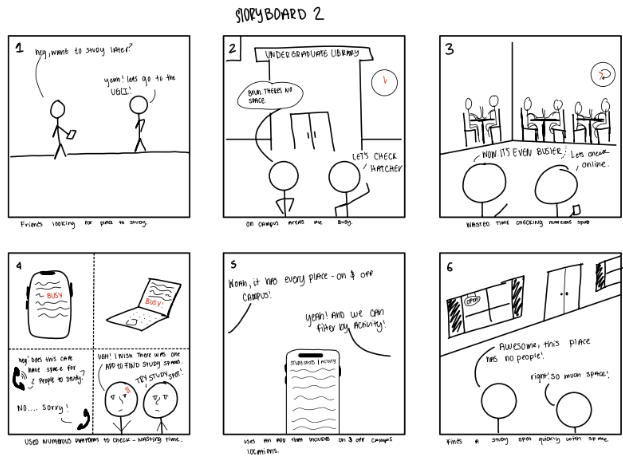 STORYBOARD 2
1
hey, want to study later?
yeah! lets go to the
UGLI!
Friends looking for place to study.
2
UNDERGRADUATE LIBRARY
BRUH THERE'S NO
SPACE.
LET'S CHECK
HATCHER
ON CAMPUS AREAS ARE BUSY.
3
NOW IT'S EVEN BUSIER!
Lets check
online.
WASTED TIME CHECKING NUMEROUS SPOTS
4
BUSY
BUSY!
hey! Does this cafe
have space for
2 people to study?
NO.... Sorry!
UGH! I WISH THERE WAS ONE
APP TO FIND STUDY SPACES.
TRY STUDY
SPOT!
USED NUMEROUS PLATFORMS TO CHECK - WASTING TIME.
5
Woah, it has every place - on & off
campus!
yeah! And we can
filter by Activity!
Uses an app that includes on & off campus
locations.
6
OPEN
Awesome, this place
has no people!
right! So much space!
Finds a study spot quickly with space.